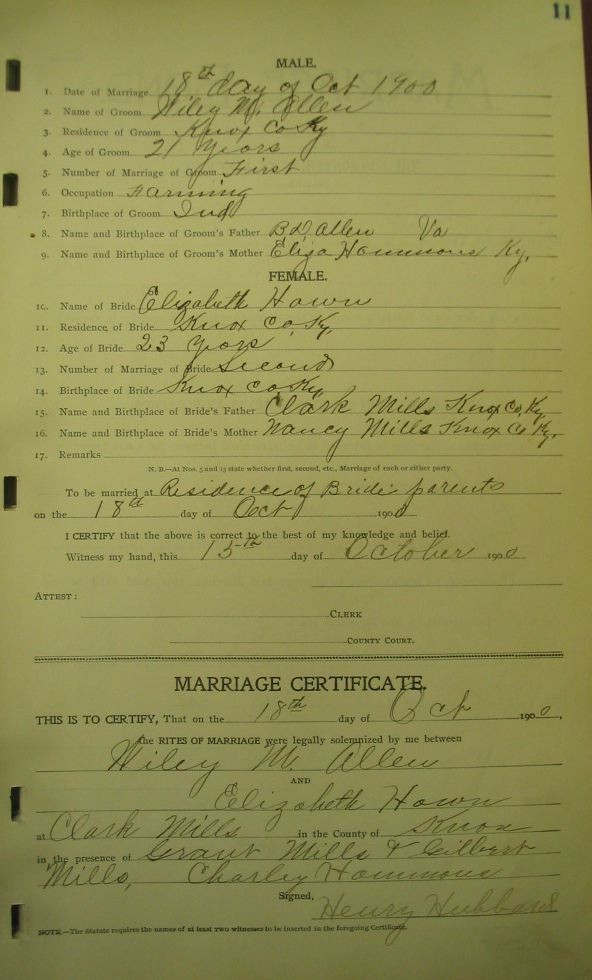 11
MALE.
1. Date of Marriage. 18th day of Oct 1900
2. Name of Groom Wiley M. Allen
3. Residence of Groom Knox Co Ky
4. Age of Groom 21 Years
5. Number of Marriage of Groom First
6. Occupation Farming
7. Birthplace of Groom Ind
8. Name and Birthplace of Groom's Father B D Allen Va
9. Name and Birthplace of Groom's Mother Eliza Hammons Ky.
FEMALE.
10. Name of Bride Elizabeth Hawn
11. Residence of Bride Knox Co, Ky,
12. Age of Bride 23 Years
13. Number of Marriage of Bride Second
14. Birthplace of Bride Knox Co Ky
15. Name and Birthplace of Bride's Father Clark Mills Knox Co, Ky,
16. Name and Birthplace of Bride's Mother Nancy Mills Knox Co Ky.
17. Remarks
N. B.—At Nos. 5 and 13 state whether first, second, etc., Marriage of each or either party.
To be married at Residence of Bride parents
on the 18th day of Oct 1900
I CERTIFY that the above is correct to the best of my knowledge and belief.
Witness my hand, this 15th day of October 1900
ATTEST:
CLERK
COUNTY COURT.
MARRIAGE CERTIFICATE.
THIS IS TO CERTIFY, That on the 18th day of Oct 1900,
the RITES OF MARRIAGE were legally solemnized by me between
Wiley M. Allen
AND
Elizabeth Hawn
at Clark Mills in the County of Knox
in the presence of Grant Mills & Gilbert
Mills, Charley Hammons
Signed, Henry Hubbard
NOTE.—The Statute requires the names of at least two witnesses to be inserted in the foregoing Certificate.